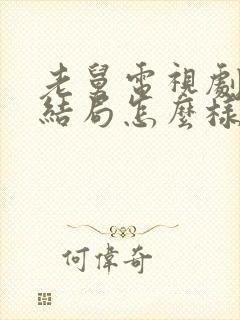 老舅電視劇
結局怎麼樣
何偉奇